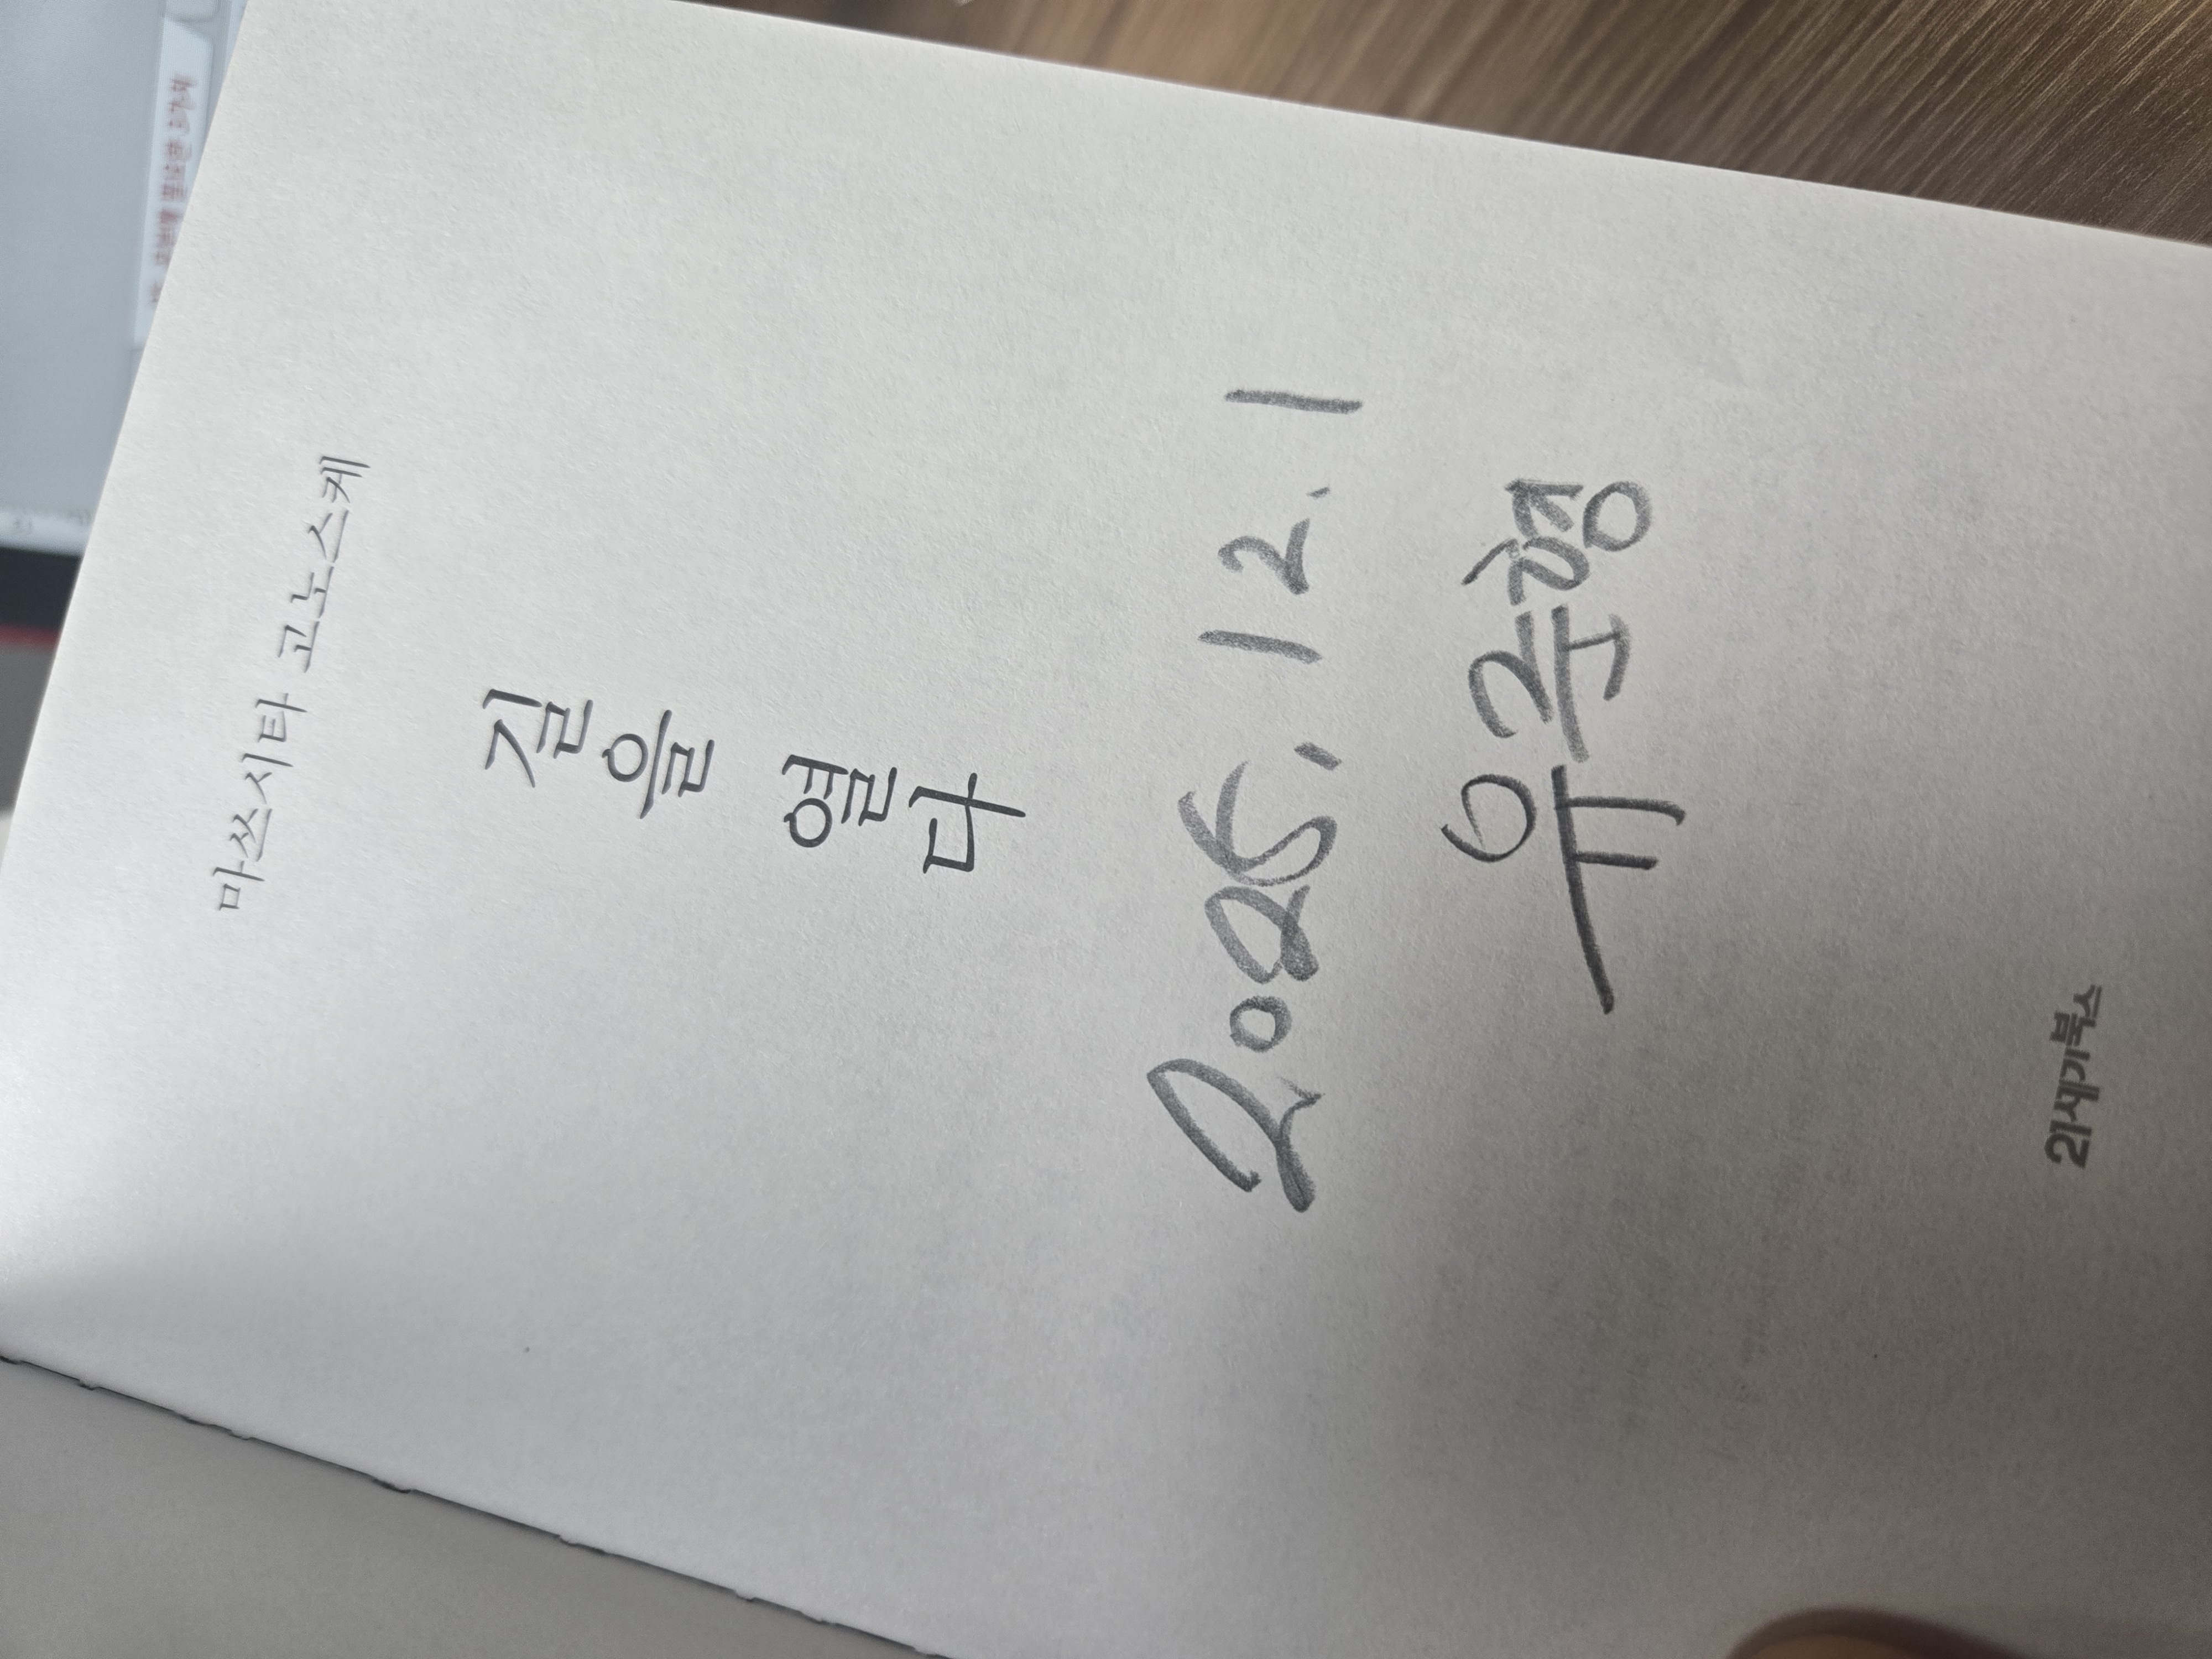 마쓰시타 고노스케
길을
열다
2025. 12. 1
21세기북스